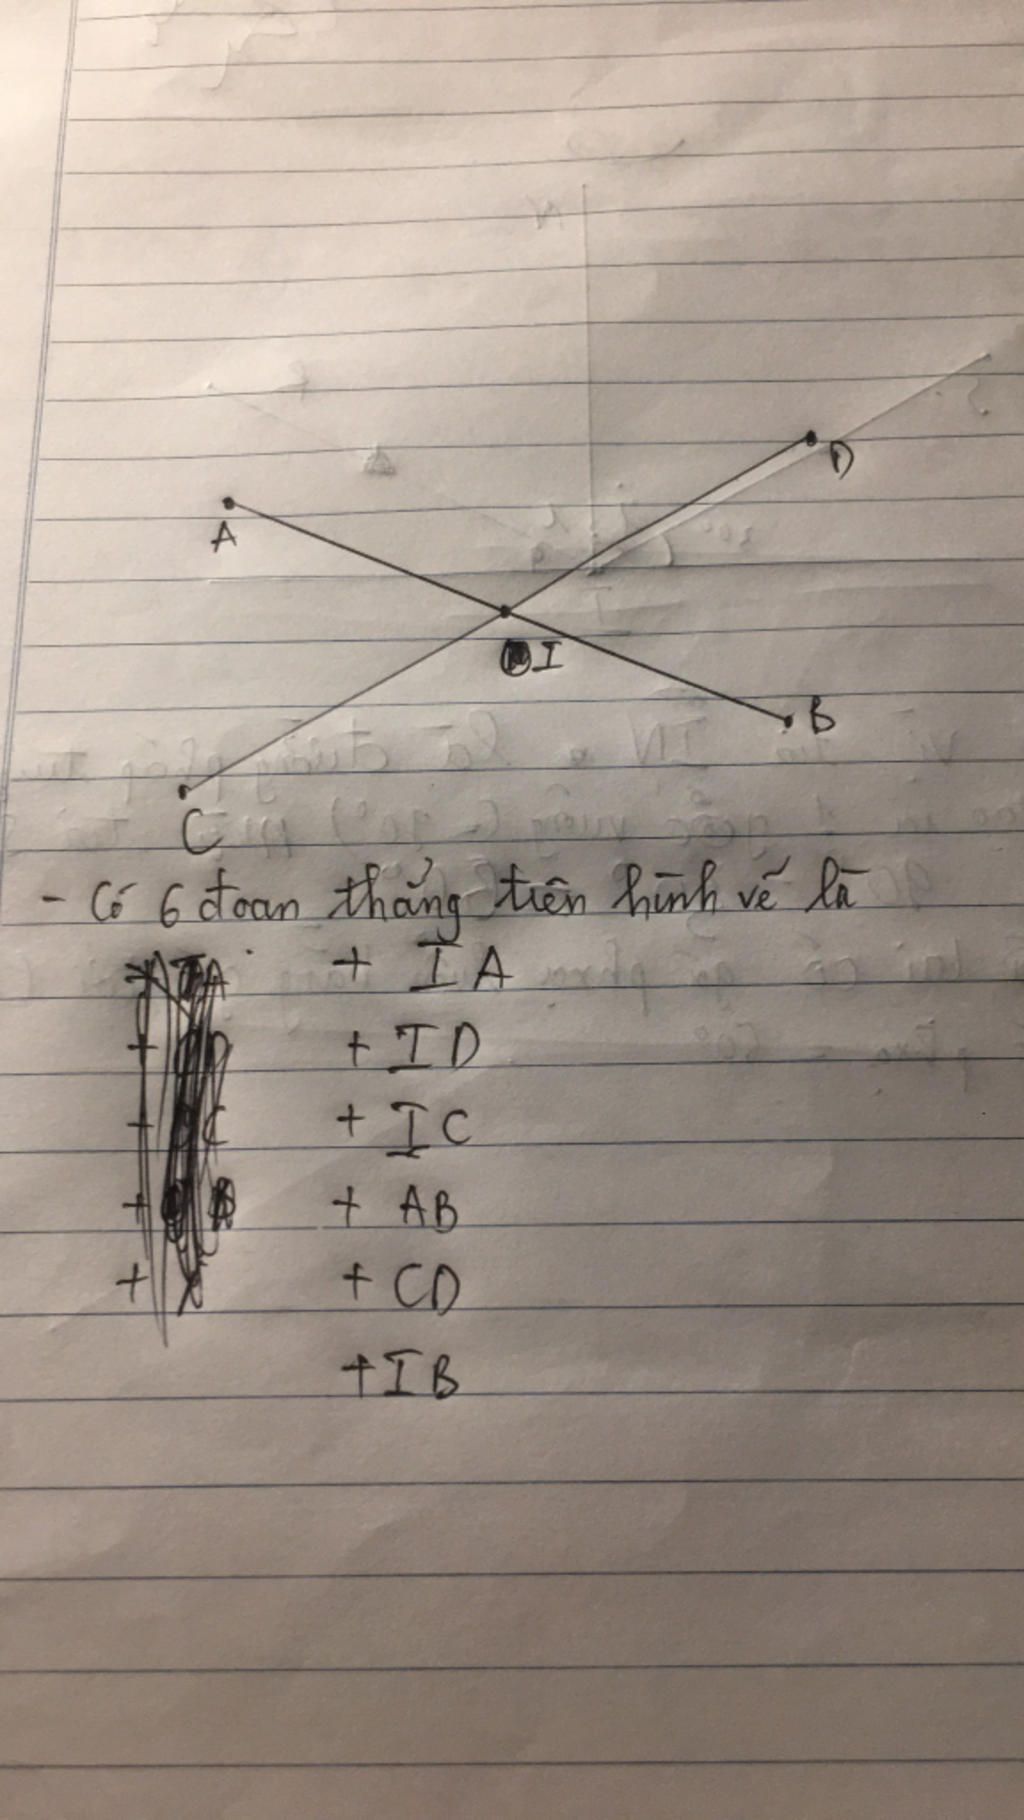 A
D
I
B
C
- Có 6 đoan thẳng tiên hình vẽ là
+ IA
+ ID
+ IC
+ AB
+ CD
+ IB